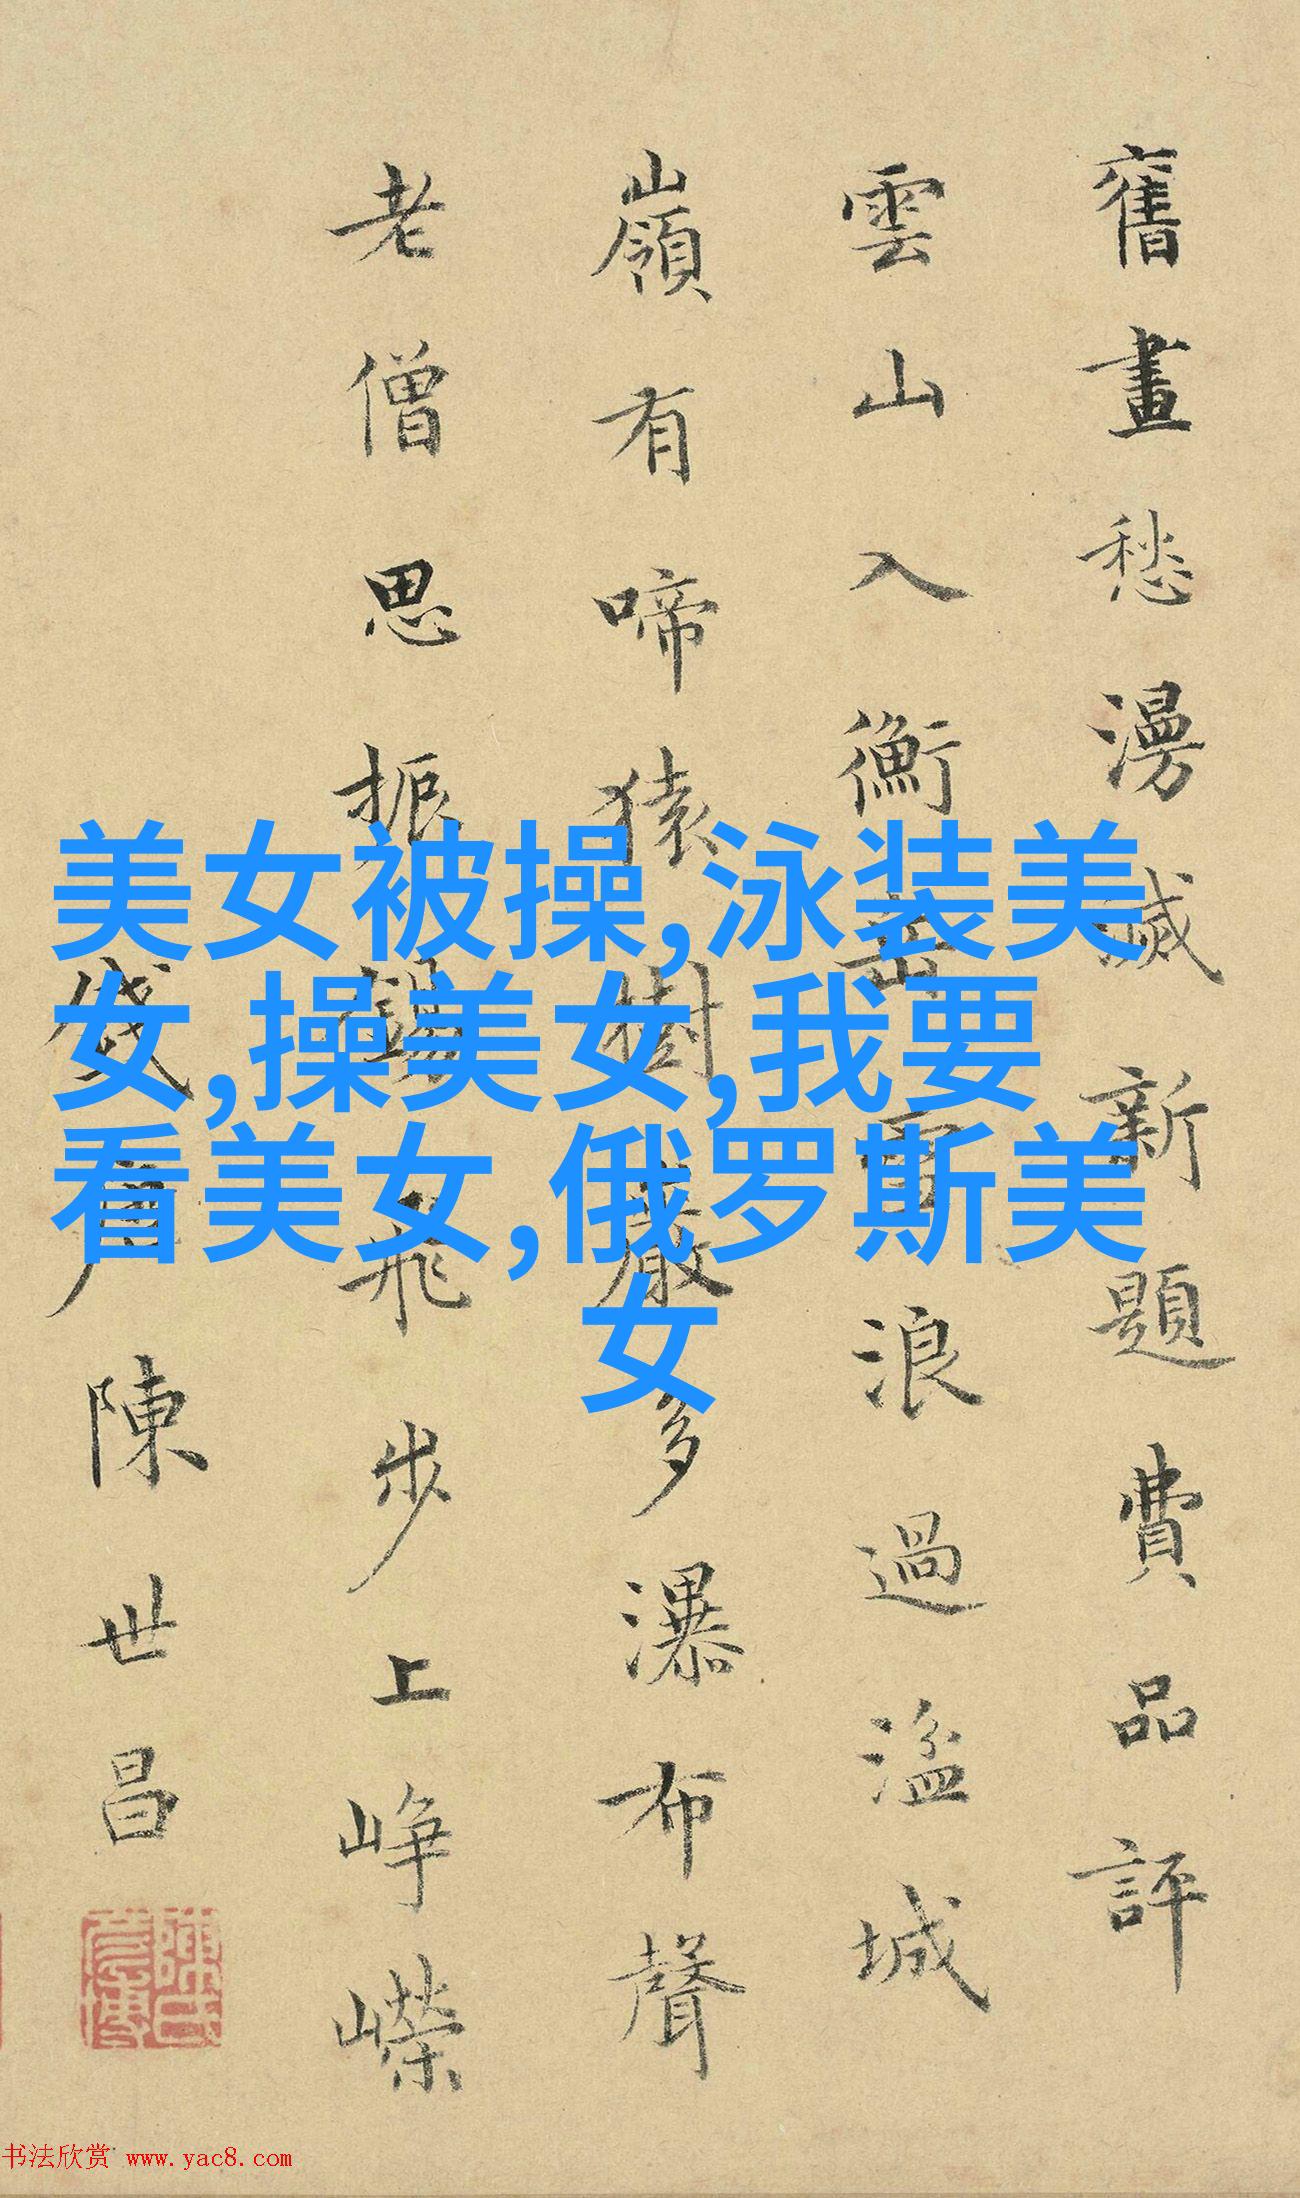 舊畫愁漫滅新題費品評
雲山入衡岳雪浪過湓城
嶺有啼猿樹巖多瀑布聲
老僧思振錫飛步上崢嶸
陳世昌
美女被操,泳装美
女,操美女,我要
看美女,俄罗斯美
女
书法欣赏 www.yac8.com